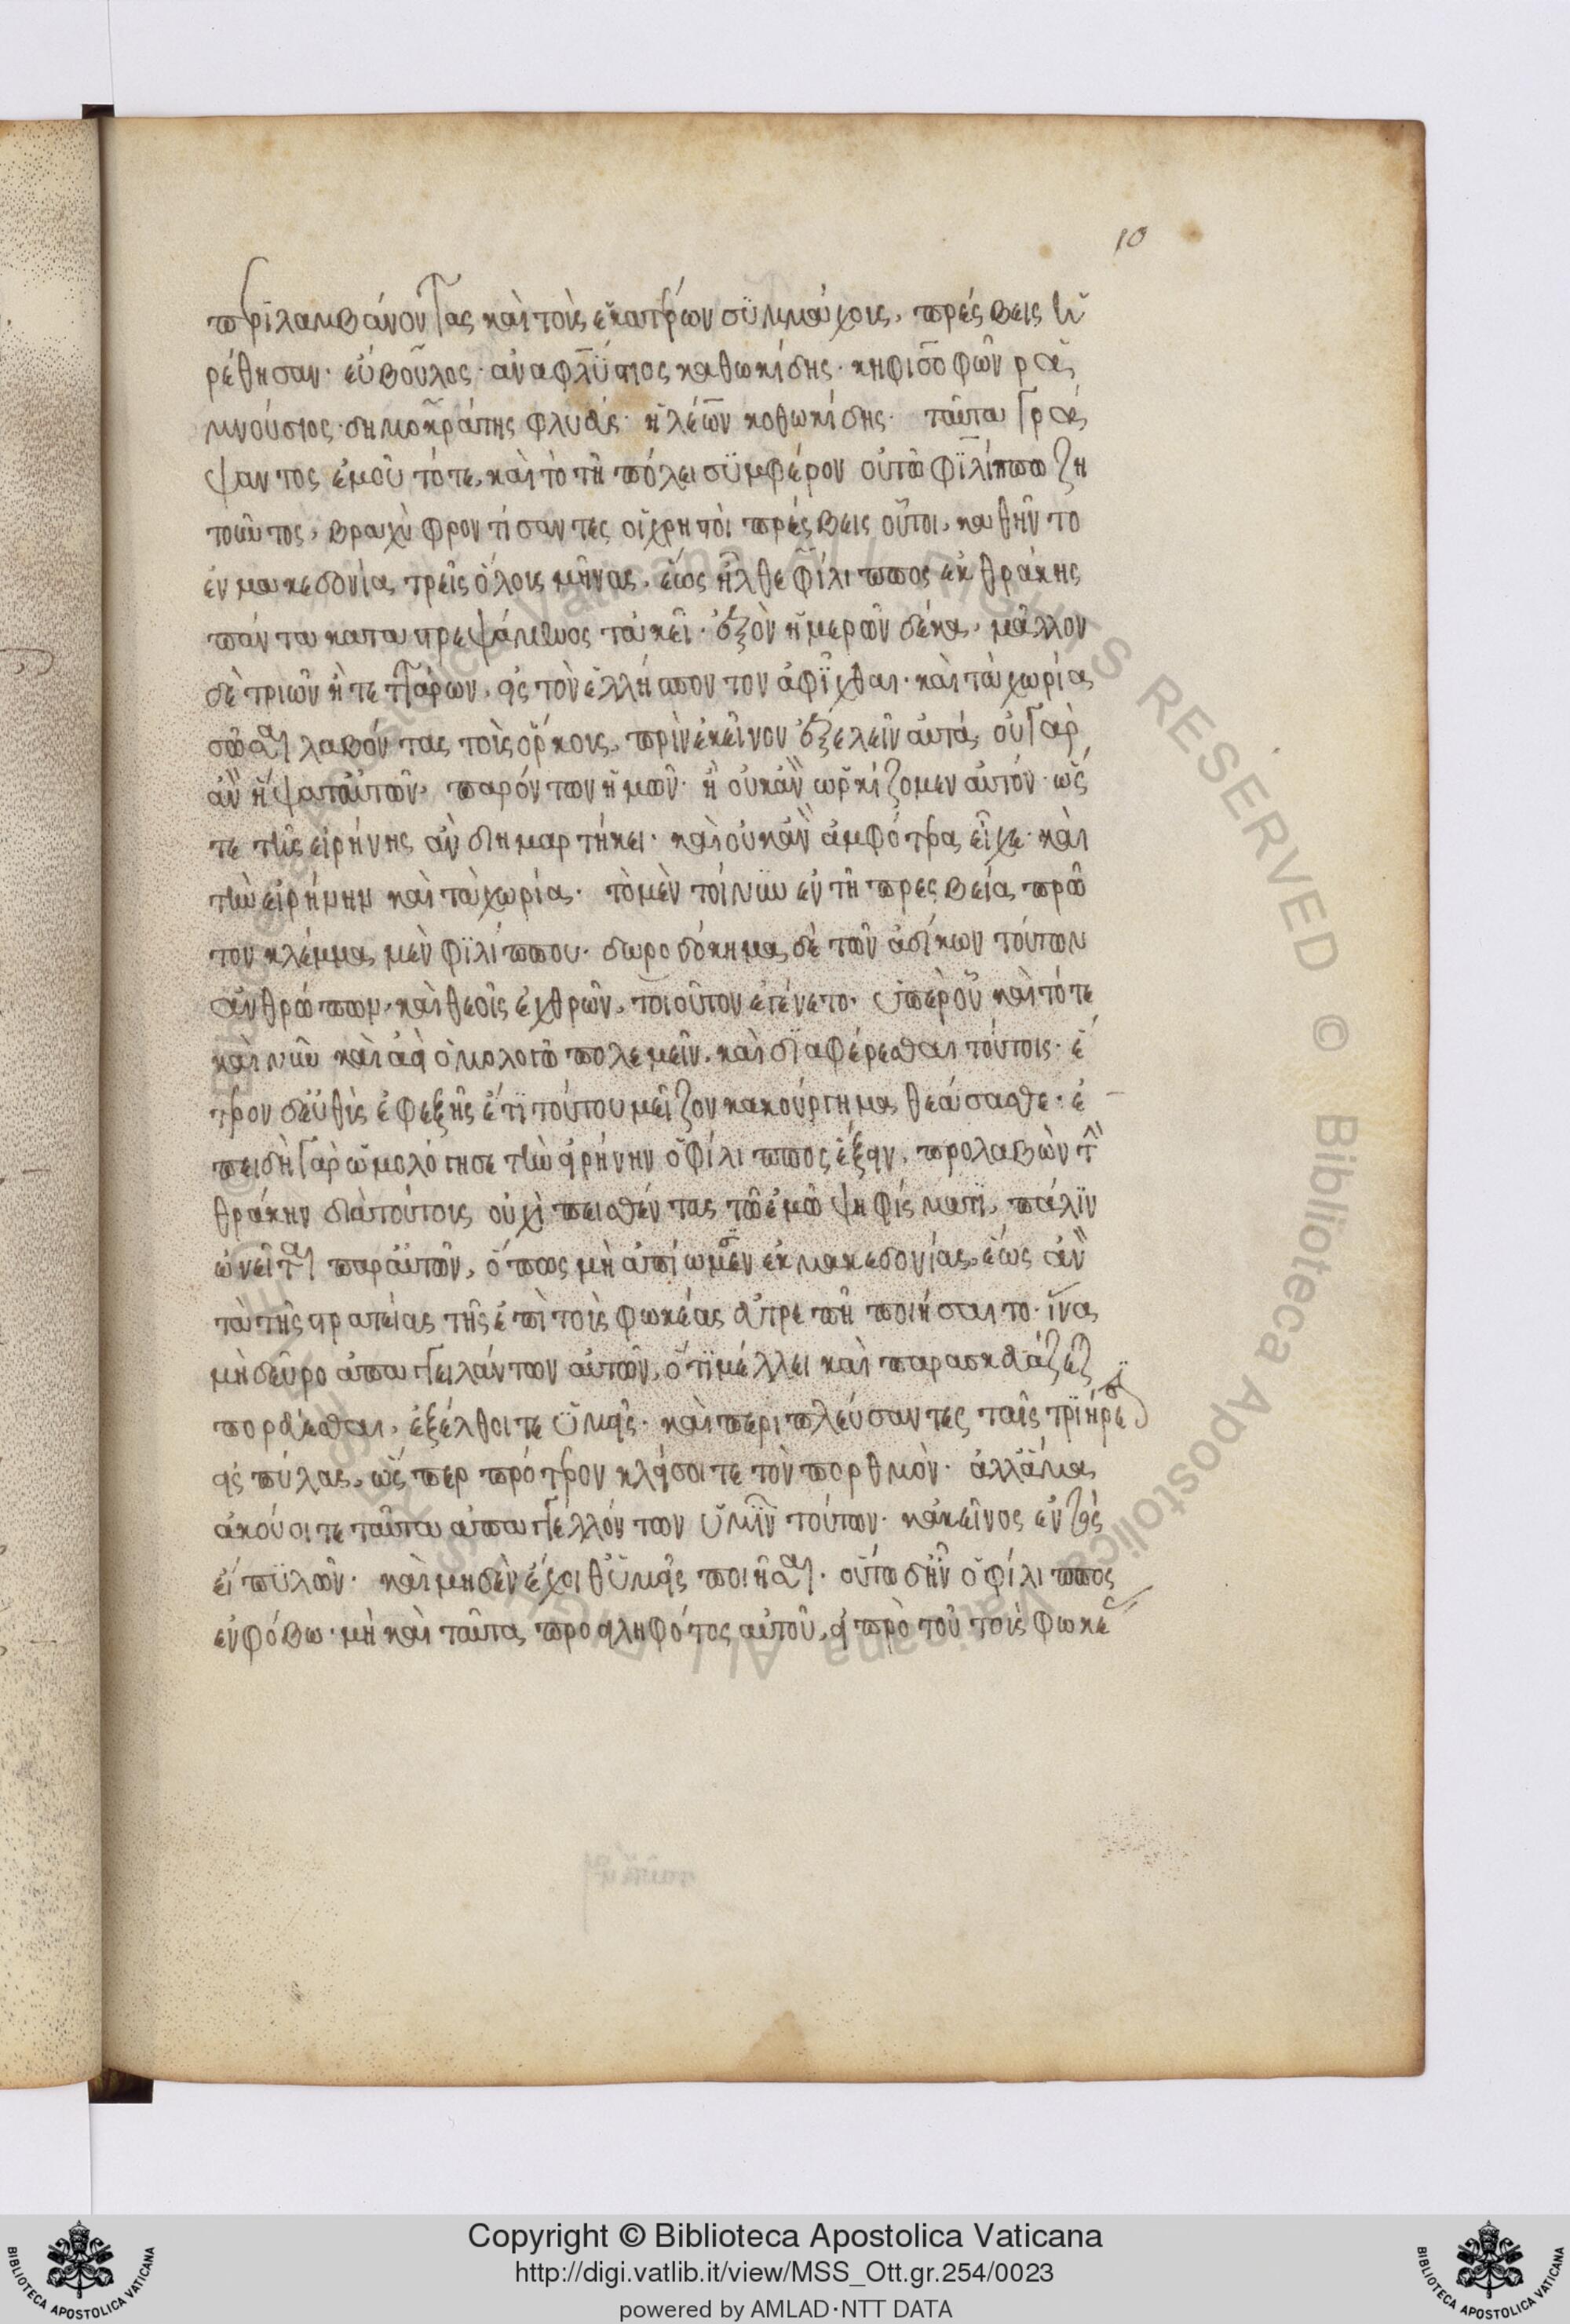 10
περιλαμβάνοντας καὶ τοὺς ἑκατέρων συμμάχους. πρέσβεις ἡ
ρέθησαν· εὔβουλος· ἀναφλύστιος καθωκίδης· κηφισοφῶν ρα
μνούσιος· δημοκράτης φλυεύς· κλέων κοθωκίδης· ταῦτα γρά
ψαντος ἐμοῦ τότε, καὶ τὸ τῆ πόλει συμφέρον οὐ τῶ φιλίππω ζη
τοῦντος, βραχὺ φροντίσαντες οἱ χρηστοὶ πρέσβεις οὗτοι, καθῆντο
ἐν μακεδονία τρεῖς ὅλους μῆνας, ἕως ἦλθε φίλιππος ἐκ θράκης
πάντα καταστρεψάμενος τἀκεῖ· ἐξὸν ἡμερῶν δέκα, μᾶλλον
δὲ τριῶν ἢ τεττάρων, εἰς τὸν ἑλλήσποντον ἀφῖχθαι· καὶ τὰ χωρία
σῶσαι λαβόντας τοὺς ὅρκους, πρὶν ἐκεῖνον ἐξελεῖν αὐτά, οὐ γὰρ
ἂν ἥψατ' αὐτῶν παρόντων ἡμῶν· ἢ οὐκ ἂν ὡρκίζομεν αὐτόν· ὥς
τε τῆς εἰρήνης ἂν διημαρτήκει· καὶ οὐκ ἂν ἀμφότερα εἶχε· καὶ
τὴν εἰρήνην καὶ τὰ χωρία· τὸ μὲν τοίνυν ἐν τῆ πρεσβεία πρῶ
τον κλέμμα μὲν φιλίππου· δωροδόκημα δὲ τῶν ἀδίκων τούτων
ἀνθρώπων, καὶ θεοῖς ἐχθρῶν, τοιοῦτον ἐγένετο· ὑπὲρ οὗ καὶ τότε
καὶ νῦν καὶ ἀεὶ ὁμολογῶ πολεμεῖν, καὶ διαφέρεσθαι τούτοις· ἕ
τερον δ' εὐθὺς ἐφεξῆς ἔτι τούτου μεῖζον κακούργημα θεάσασθε· ἐ
πειδὴ γὰρ ὡμολόγησε τὴν εἰρήνην ὁ φίλιππος ἕξειν, προλαβὼν τὴν
θράκην διὰ τούτους οὐχὶ πεισθέντας τῶ ἐμῶ ψηφίσματι, πάλιν
ὠνεῖται παρ' αὐτῶν, ὅπως μὴ ἀπίωμεν ἐκ μακεδονίας, ἕως ἂν
τὰ τῆς στρατείας τῆς ἐπὶ τοὺς φωκέας εὐτρεπῆ ποιήσαιτο· ἵνα
μὴ δεῦρο ἀπαγγειλάντων αὐτῶν, ὅτι μέλλει καὶ παρασκευάζεται
πορεύεσθαι, ἐξέλθοιτε ὑμεῖς· καὶ περιπλεύσαντες ταῖς τριήρεσιν
εἰς πύλας, ὥσπερ πρότερον κλείσοιτε τὸν πορθμὸν· ἀλλ' ἅμα
ἀκούοιτε ταῦτα ἀπαγγελλόντων ὑμῖν τούτων· κἀκεῖνος ἐντὸς
εἴη πυλῶν· καὶ μηδὲν ἔχοιθ' ὑμεῖς ποιῆσαι· οὕτω δ' ἦν ὁ φίλιππος
ἐν φόβω· μὴ καὶ ταῦτα προειληφότος αὐτοῦ, εἰ πρὸ τοῦ τοὺς φωκέ
Copyright © Biblioteca Apostolica Vaticana
http://digi.vatlib.it/view/MSS_Ott.gr.254/0023
powered by AMLAD·NTT DATA